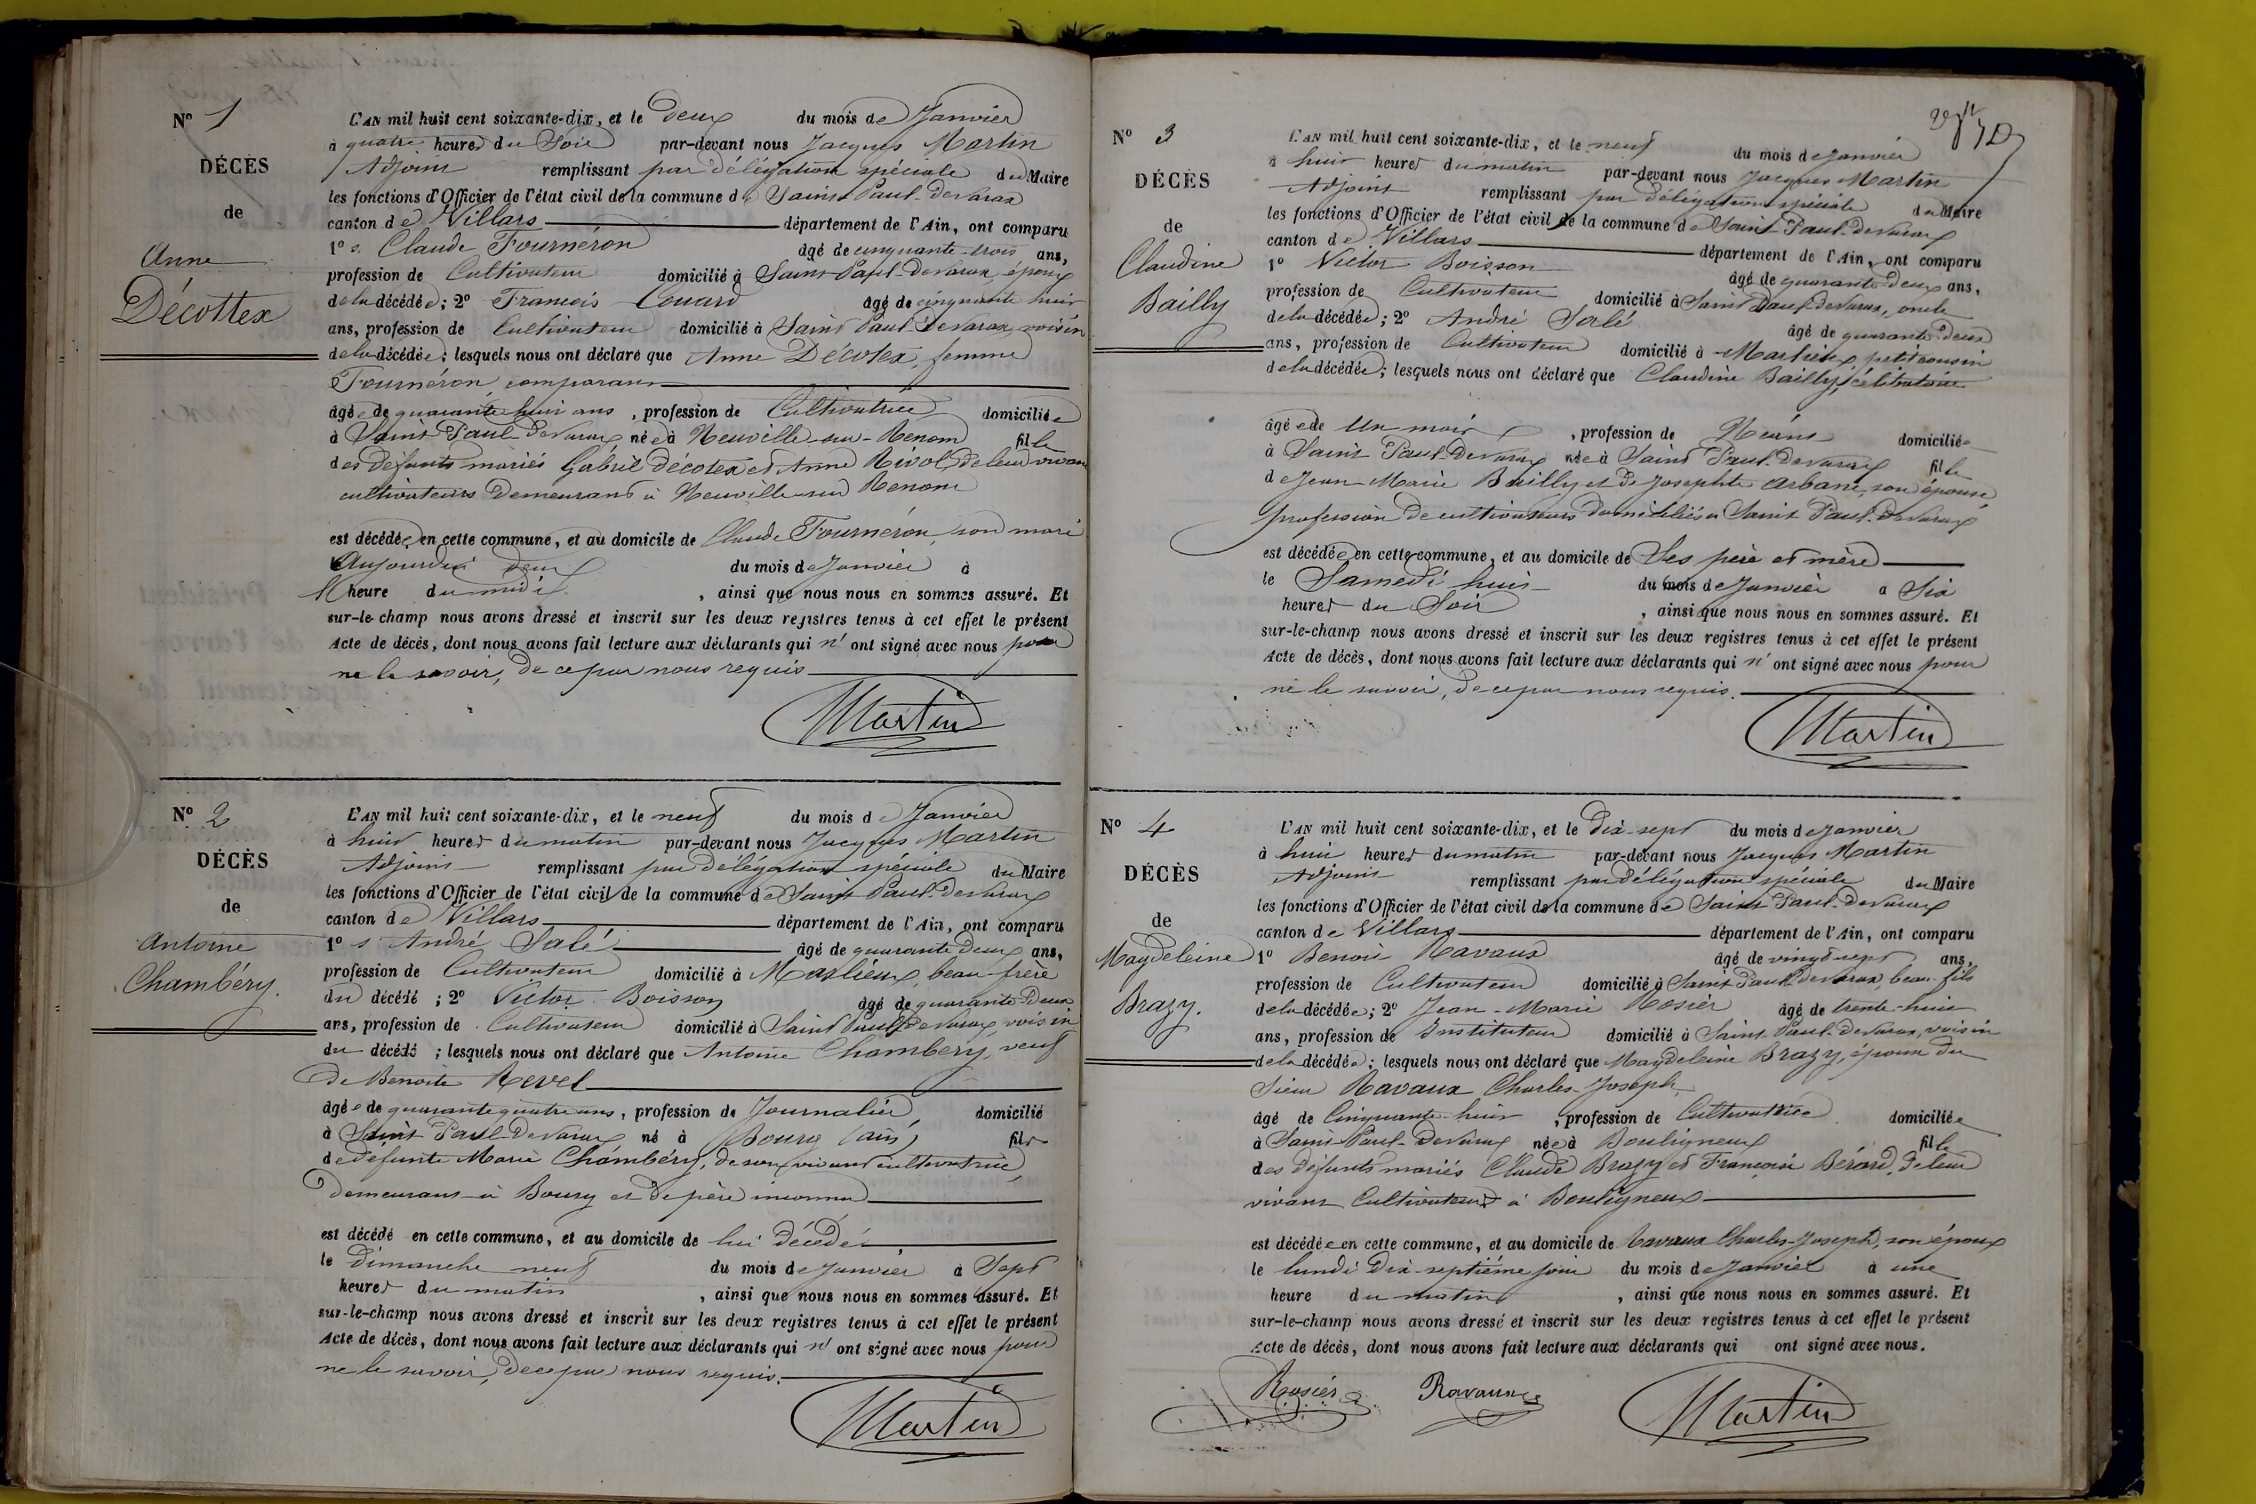 Nº 1
DÉCÈS
de
Anne
Décottex
L'AN mil huit cent soixante-dix, et le Deux du mois de Janvier
à quatre heures du Soir par-devant nous Jacques Martin
Adjoint remplissant par délégation spéciale du Maire
les fonctions d'Officier de l'état civil de la commune de Saint Paul-de Varax
canton de Villars département de l'Ain, ont comparu
1º s. Claude Fournéron âgé de cinquante-trois ans,
profession de Cultivateur domicilié à Saint Paul-de Varax, époux
de la décédée ; 2º François Couard âgé de cinquante huit
ans, profession de Cultivateur domicilié à Saint Paul de Varax, voisin
de la décédée ; lesquels nous ont déclaré que Anne Décotex, femme
Fournéron comparant
âgée de quarante huit ans, profession de Cultivatrice domiciliée
à Saint Paul-de Varax née à Neuville-sur-Renom fille
des défunts mariés Gabriel Décotex et Anne Rivol, de leur vivant
cultivateurs demeurant à Neuville-sur Renom
est décédée en cette commune, et au domicile de Claude Fournéron, son mari
Aujourd'hui deux du mois de Janvier à
heure du midi, ainsi que nous nous en sommes assuré. Et
sur-le-champ nous avons dressé et inscrit sur les deux registres tenus à cet effet le présent
Acte de décès, dont nous avons fait lecture aux déclarants qui n'ont signé avec nous pour
ne le savoir, de ce par nous requis
Martin
Nº 2
DÉCÈS
de
Antoine
Chambéry.
L'AN mil huit cent soixante-dix, et le neuf du mois de Janvier
à huit heures du matin par-devant nous Jacques Martin
Adjoint remplissant par délégation spéciale du Maire
les fonctions d'Officier de l'état civil de la commune de Saint Paul-de Varax
canton de Villars département de l'Ain, ont comparu
1º s André Salé âgé de quarante deux ans,
profession de Cultivateur domicilié à Marlieux, beau-frère
du décédé ; 2º Victor Boisson âgé de quarante-deux
ans, profession de Cultivateur domicilié à Saint Paul de Varax, voisin
du décédé ; lesquels nous ont déclaré que Antoine Chambéry, veuf
de Benoite Revel
âgé de quarante quatre ans, profession de Journalier domicilié
à Saint Paul-de Varax né à Bourg (ain) fils
de défunte Marie Chambéry, de son vivant cultivatrice,
demeurant à Bourg et de père inconnu
est décédé en cette commune, et au domicile de lui décédé,
le Dimanche neuf du mois de Janvier à Sept
heures du matin, ainsi que nous nous en sommes assuré. Et
sur-le-champ nous avons dressé et inscrit sur les deux registres tenus à cet effet le présent
Acte de décès, dont nous avons fait lecture aux déclarants qui n'ont signé avec nous pour
ne le savoir, de ce par nous requis.
Martin
Nº 3
DÉCÈS
de
Claudine
Bailly
L'AN mil huit cent soixante-dix, et le neuf du mois de Janvier
à huit heures du matin par-devant nous Jacques Martin
Adjoint remplissant par délégation spéciale du Maire
les fonctions d'Officier de l'état civil de la commune de Saint Paul-de Varax
canton de Villars département de l'Ain, ont comparu
1º Victor Boisson âgé de quarante deux ans,
profession de Cultivateur domicilié à Saint Paul-de Varax, oncle
de la décédée ; 2º André Salé âgé de quarante-deux
ans, profession de Cultivateur domicilié à Marlieux, petit cousin
de la décédée ; lesquels nous ont déclaré que Claudine Bailly, célibataire
âgée de Un mois, profession de Néant domiciliée
à Saint Paul-de Varax née à Saint Paul-de Varax fille
de Jean Marie Bailly et de Josephte Arbant, son épouse
profession de cultivateurs domiciliés à Saint Paul-de Varax
est décédée en cette commune, et au domicile de Ses père et mère
le Samedi huit du mois de Janvier à Six
heures du Soir, ainsi que nous nous en sommes assuré. Et
sur-le-champ nous avons dressé et inscrit sur les deux registres tenus à cet effet le présent
Acte de décès, dont nous avons fait lecture aux déclarants qui n'ont signé avec nous pour
ne le savoir, de ce par nous requis.
Martin
Nº 4
DÉCÈS
de
Magdeleine
Brazy.
L'AN mil huit cent soixante-dix, et le Dix-sept du mois de Janvier
à huit heures du matin par-devant nous Jacques Martin
Adjoint remplissant par délégation spéciale du Maire
les fonctions d'Officier de l'état civil de la commune de Saint Paul-de Varax
canton de Villars département de l'Ain, ont comparu
1º Benoit Ravaux âgé de vingt sept ans,
profession de Cultivateur domicilié à Saint Paul de Varax, beau-fils
de la décédée ; 2º Jean-Marie Rosier âgé de trente-huit
ans, profession de Instituteur domicilié à Saint Paul-de Varax, voisin
de la décédée ; lesquels nous ont déclaré que Magdeleine Brazy, épouse du
Sieur Ravaux Charles-Joseph
âgé de Cinquante-huit, profession de Cultivatrice domiciliée
à Saint Paul-de Varax née à Bouligneux fille
des défunts mariés Claude Brazy et Françoise Bérard, de leur
vivant Cultivateurs à Bouligneux
est décédée en cette commune, et au domicile de Ravaux Charles-Joseph, son époux
le lundi Dix-septième jour du mois de Janvier à une
heure du matin, ainsi que nous nous en sommes assuré. Et
sur-le-champ nous avons dressé et inscrit sur les deux registres tenus à cet effet le présent
Acte de décès, dont nous avons fait lecture aux déclarants qui ont signé avec nous.
Rosier Ravaux Martin